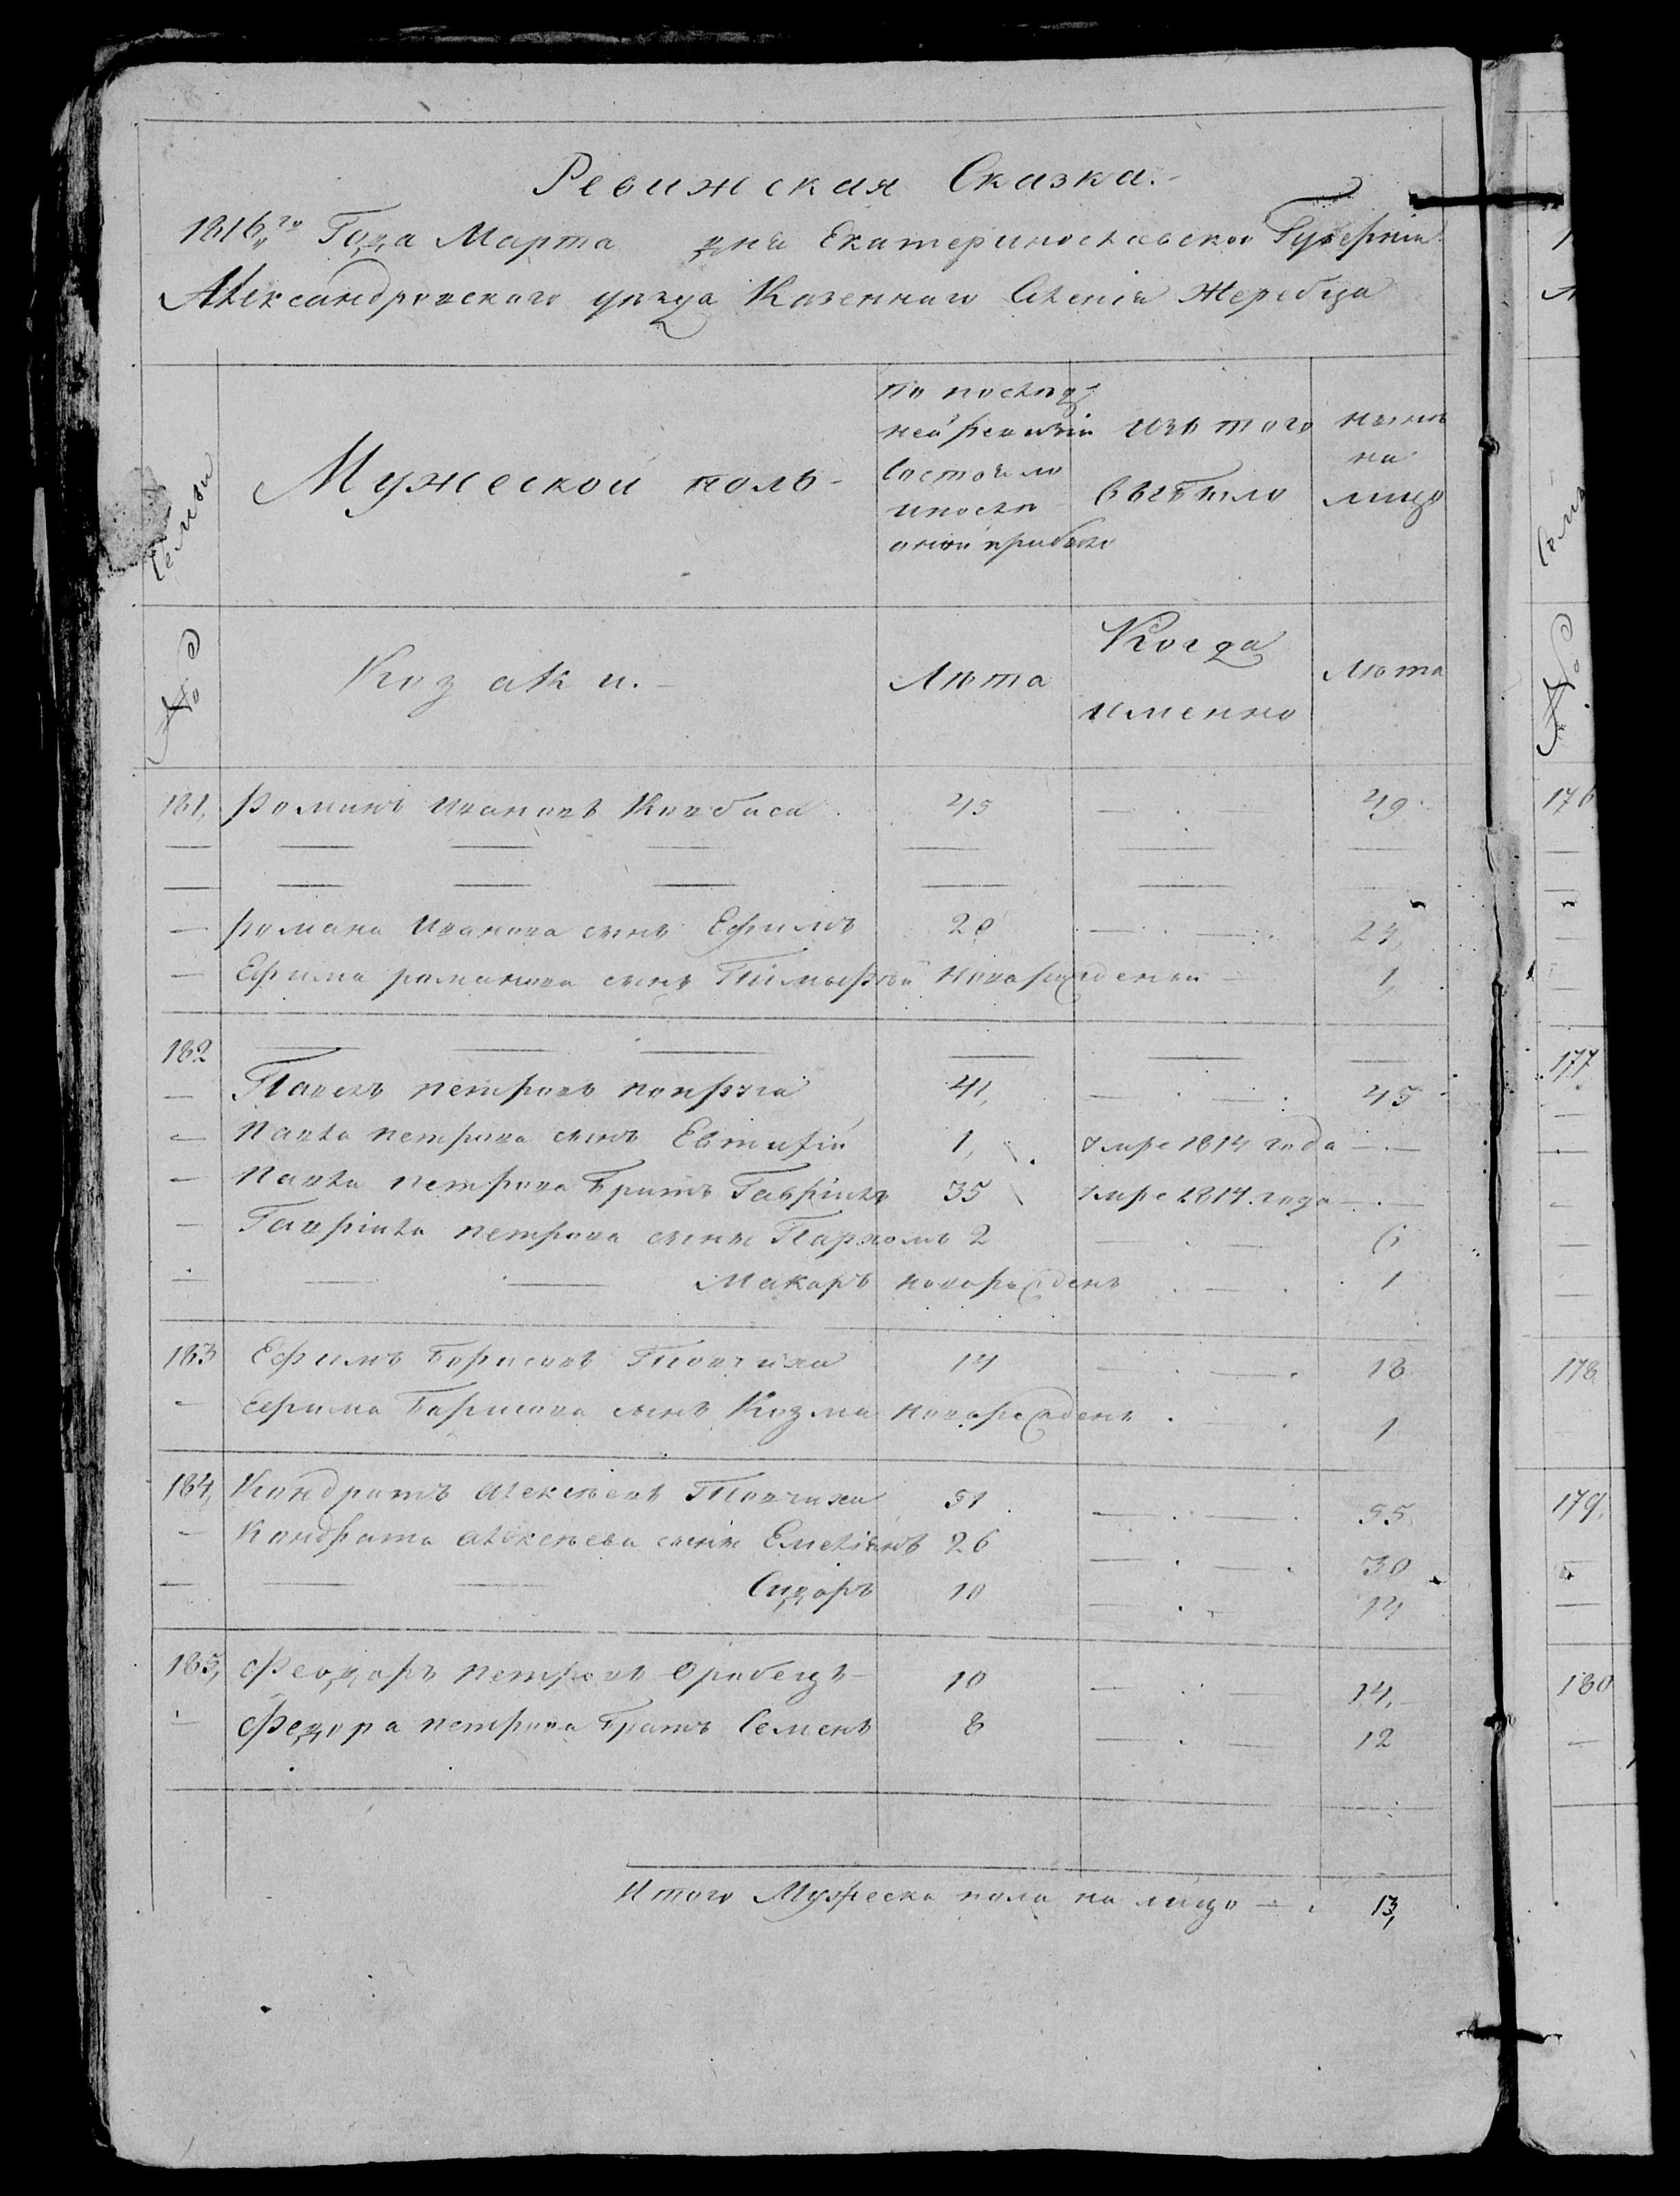 Ревижская Сказка.-
1816го Года Марта дня Екатеринославской Губерніи
Александровскаго уѣзда Казеннаго Селенія Жеребца
Семьи
Мужеской полъ-
по послѣд
ней ревизіи
состояло
и послѣ
оной прибыло
изъ того
выбыло
нынѣ
на
лицо
№
Козаки.-
Лѣта
Когда
именно
Лѣта
181, Романъ Ивановъ Ковбаса 45 — . — 49
— — — — — — —
— — — — — — —
— Романа Иванова сынъ Ефимъ 20 — . — 24,
— Ефима романова сынъ Тимофѣй новорожденъ — 1,
182 — — — — — —
— Павелъ петровъ 41, — . — 45
— Павла петрова сынъ Евтифій 1, умре 1814 года — . —
— Павла петрова Братъ Гаврілъ 35 умре 1814. года — . —
— Гавріла петрова сынъ Пархомъ 2 — . — 6,
— — — Макаръ новорожденъ . — . 1
183 Ефимъ Борисовъ Товчиха 14 — . — . 18
— Ефима Борисова сынъ Козма новорожденъ . — . 1
184, Кондратъ Алексѣевъ Товчиха 51 — . — . 55
— Кондрата Алексѣева сынъ Емеліянъ 26 — . — . 30
— — — Сидоръ 10 — . — 14
185, Феодоръ петровъ 10 — . — 14,
— Федора петрова Братъ Семенъ 8 — . — 12
Итого Мужеска пола на лицо — . 13,
Семьи
№
176
177
178
179,
180